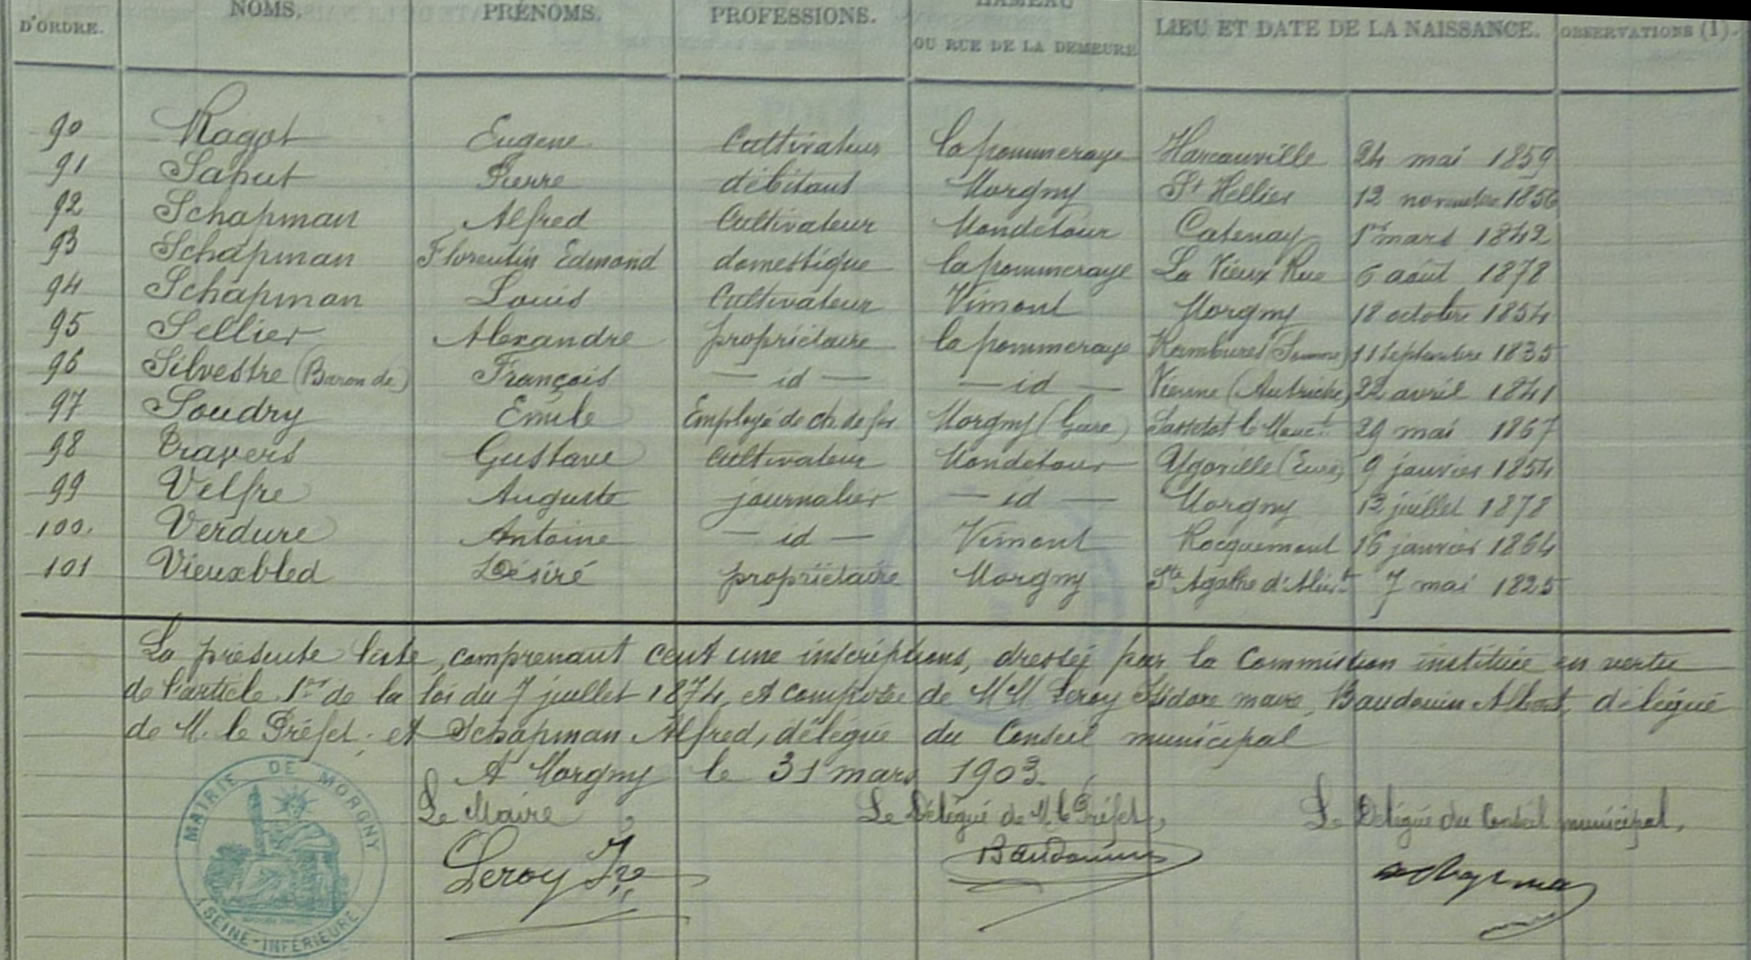 D'ORDRE. NOMS. PRÉNOMS. PROFESSIONS. HAMEAU OU RUE DE LA DEMEURE LIEU ET DATE DE LA NAISSANCE. OBSERVATIONS (1).
90 Ragot Eugene Cultivateur la pommeraye Harcauville 24 mai 1859
91 Saput Pierre débitant Morgny St Hellier 12 novembre 1856
92 Schapman Alfred Cultivateur Mondétour Catenay 1er mars 1842
93 Schapman Florentin Edmond domestique la pommeraye La Vieux Rue 6 août 1878
94 Schapman Louis Cultivateur Vimont Morgny 18 octobre 1854
95 Sellier Alexandre propriétaire la pommeraye Rambures (Somme) 11 septembre 1835
96 Silvestre (Baron de) François — id — — id — Vienne (Autriche) 22 avril 1841
97 Soudry Emile Employé de ch. de fer Morgny (Gare) Sassetot le Mauct 29 mai 1867
98 Travers Gustave Cultivateur Mondétour (Eure) 9 janvier 1854
99 Velfre Auguste journalier — id — Morgny 12 juillet 1878
100. Verdure Antoine — id — Vimont Rocquemont 16 janvier 1864
101 Vieuxbled Désiré propriétaire Morgny Ste Agathe d'Aliert 7 mai 1825
La présente liste, comprenant cent une inscriptions, dressée par la Commission instituée en vertu
de l'article 1er de la loi du 7 juillet 1874, et composée de MM. Leroy Isidore maire, Baudouin Albert, délégué
de M. le Préfet, et Schapman Alfred, délégué du Conseil municipal
A Morgny le 31 mars 1903.
Le Maire Le Délégué de M. le Préfet, Le Délégué du Conseil municipal,
Leroy Ire Baudouin
MAIRIE DE MORGNY
SEINE-INFÉRIEURE